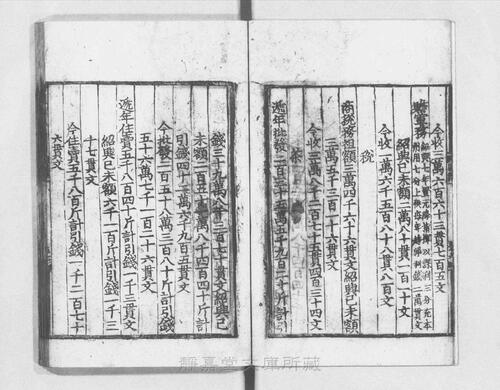 今收一萬六百六十三貫七百五文
贍軍務
紹興己未額二萬八十貫一百一十文
今收一萬六千五百八十八貫八百文
稅
商稅務祖額三萬四千六十六貫文紹興己未額
三萬五千三百一十六貫文
今收三萬八千二百七十五貫四百三十四文
茶
錢三十九萬八千三百七十貫文紹興己
未額
引錢四十二萬六千九百五貫文
今批發二百五十八萬三千三百八十斤計引錢
五十六萬七千一百二十六貫文
近年住賣五千八百四十斤計引錢一千三貫文
紹興己未額六千一百斤計引錢一千三
十七貫文
今住賣五千八百斤計引錢一千二百七十
六貫文
靜嘉堂文庫所藏